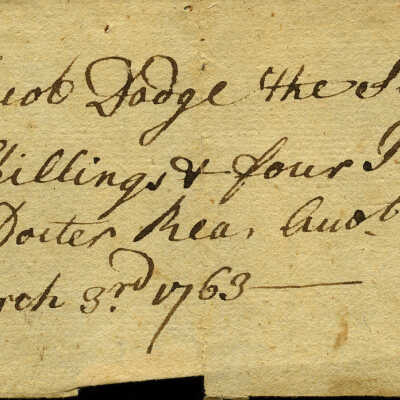 uob Dodge the S
hillings & four P
Docter Rea,
rch 3.rd 1763